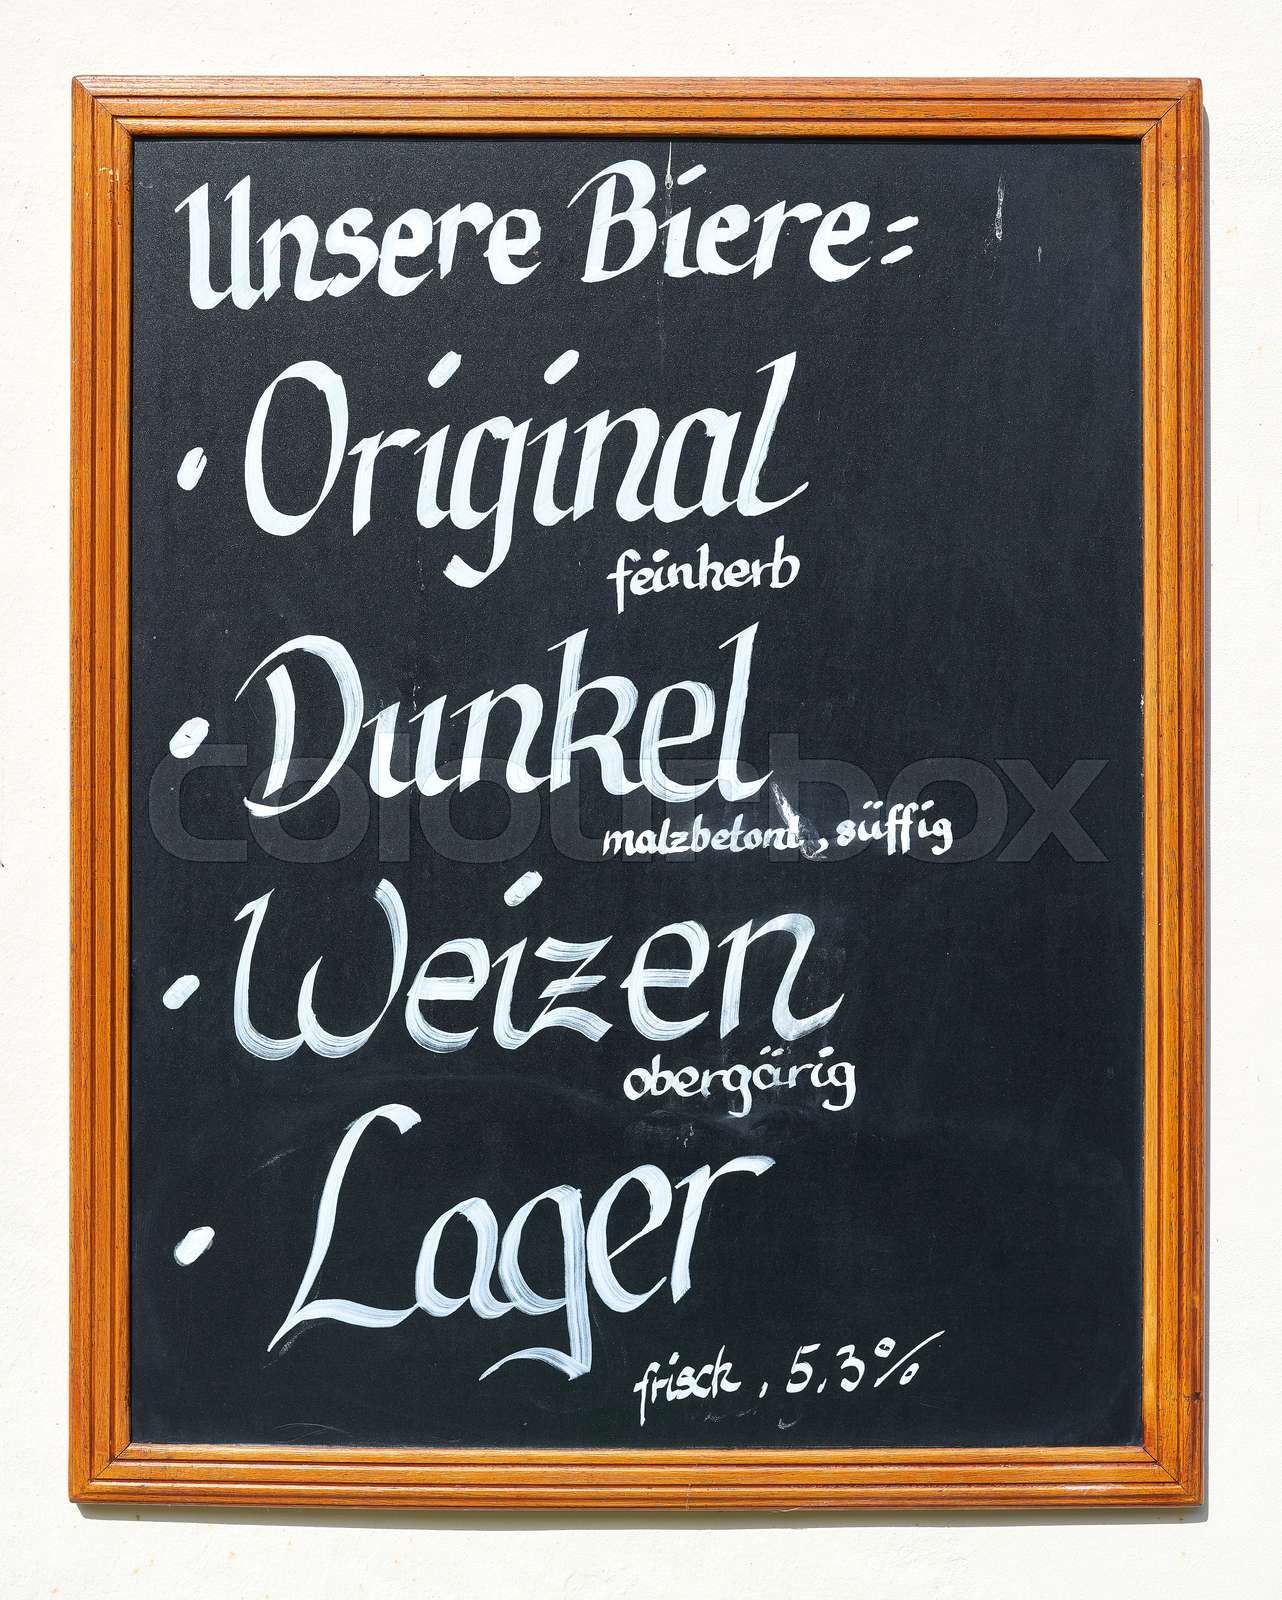 Unsere Biere:
• Original
feinherb
• Dunkel
malzbetont, süffig
• Weizen
obergärig
• Lager
frisch, 5,3%
colourbox